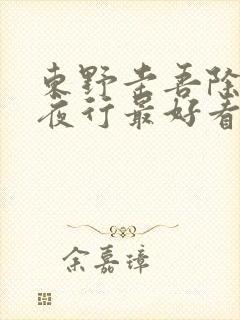 東野圭吾除
夜行最好看
余嘉璋